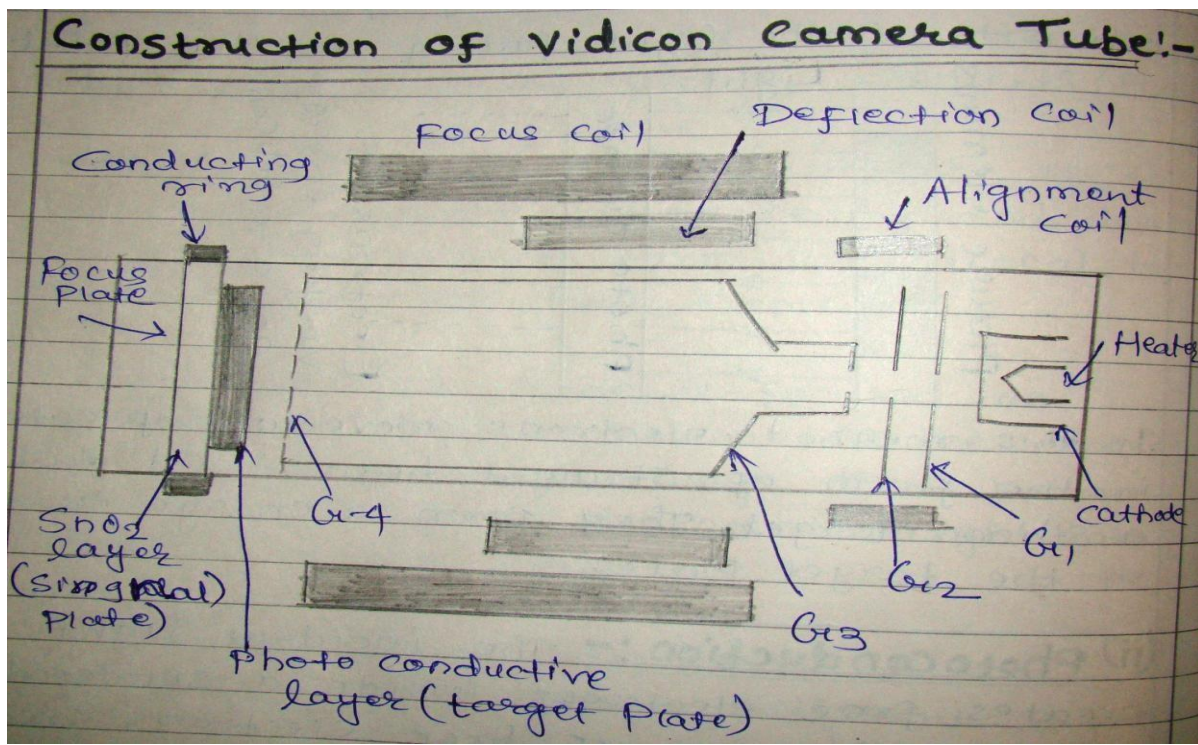 Construction of Vidicon Camera Tube:-
Focus Coil
Deflection Coil
Conducting
ring
Alignment
Coil
Focus
Plate
Heater
SnO2
layer
Plate)
G-4
Cathode
G1
G2
G3
Photo conductive
layer (target Plate)